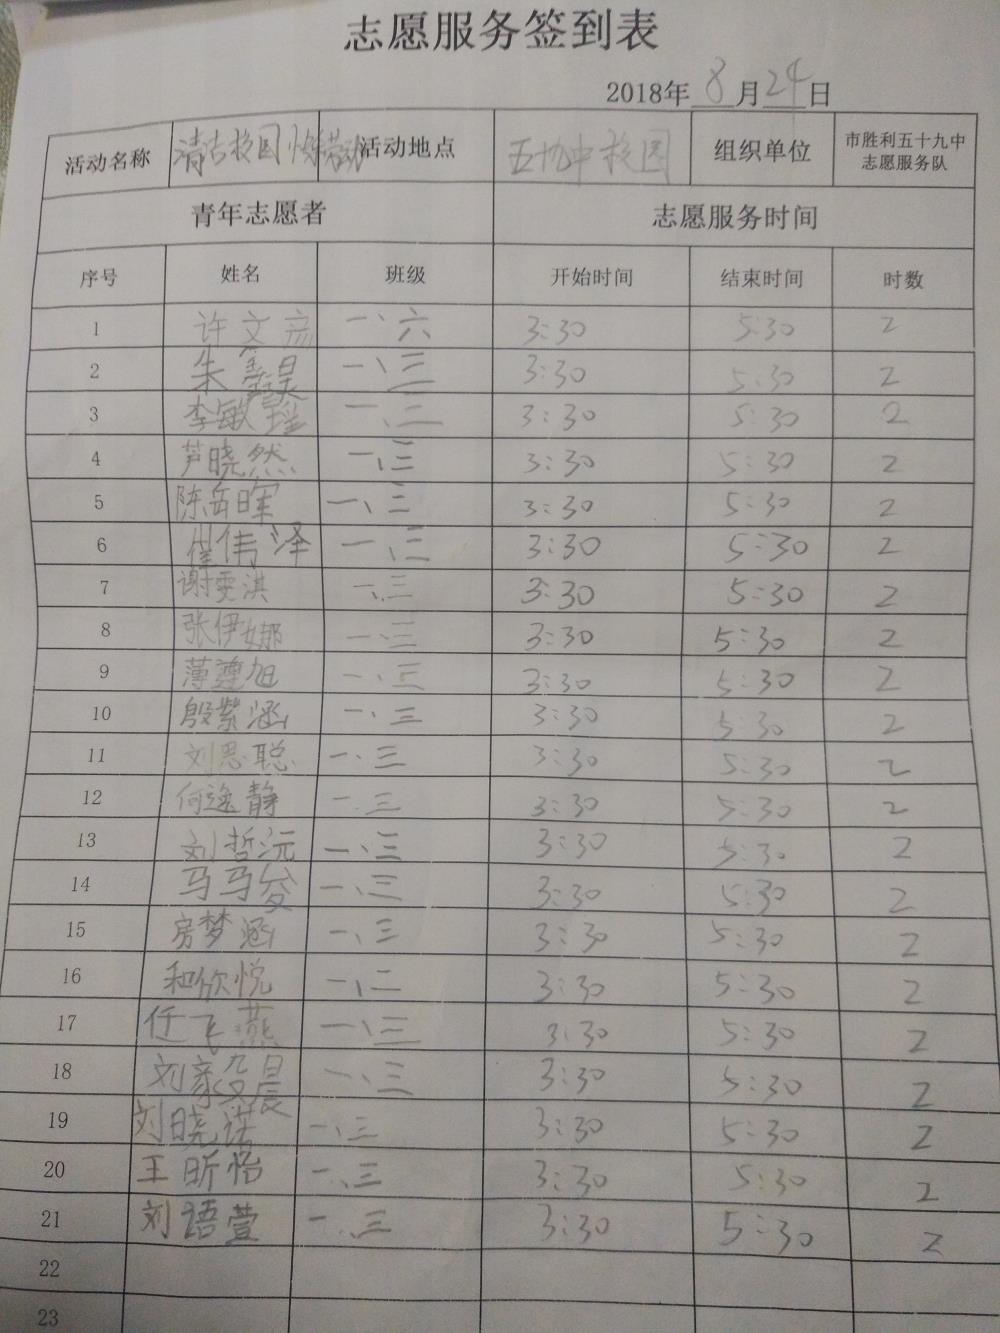 志愿服务签到表
2018年 8 月 24 日
活动名称 清洁校园 活动地点 五十九中校园 组织单位 市胜利五十九中志愿服务队
青年志愿者 志愿服务时间
序号 姓名 班级 开始时间 结束时间 时数
1 许文彦 一、六 3:30 5:30 2
2 朱 一、三 3:30 5:30 2
3 李敏瑶 一、二 3:30 5:30 2
4 芦晓然 一、三 3:30 5:30 2
5 陈岳晖 一、三 3:30 5:30 2
6 崔伟泽 一、三 3:30 5:30 2
7 谢雯淇 一、三 3:30 5:30 2
8 张伊娜 一、三 3:30 5:30 2
9 薄莲旭 一、三 3:30 5:30 2
10 殷紫涵 一、三 3:30 5:30 2
11 刘思聪 一、三 3:30 5:30 2
12 何逸静 一、三 3:30 5:30 2
13 刘哲沅 一、三 3:30 5:30 2
14 马马俊 一、三 3:30 5:30 2
15 房梦涵 一、三 3:30 5:30 2
16 和欣悦 一、二 3:30 5:30 2
17 任飞燕 一、三 3:30 5:30 2
18 刘 晨 一、三 3:30 5:30 2
19 刘晓诺 一、三 3:30 5:30 2
20 王昕怡 一、三 3:30 5:30 2
21 刘语萱 一、三 3:30 5:30 2
22
23